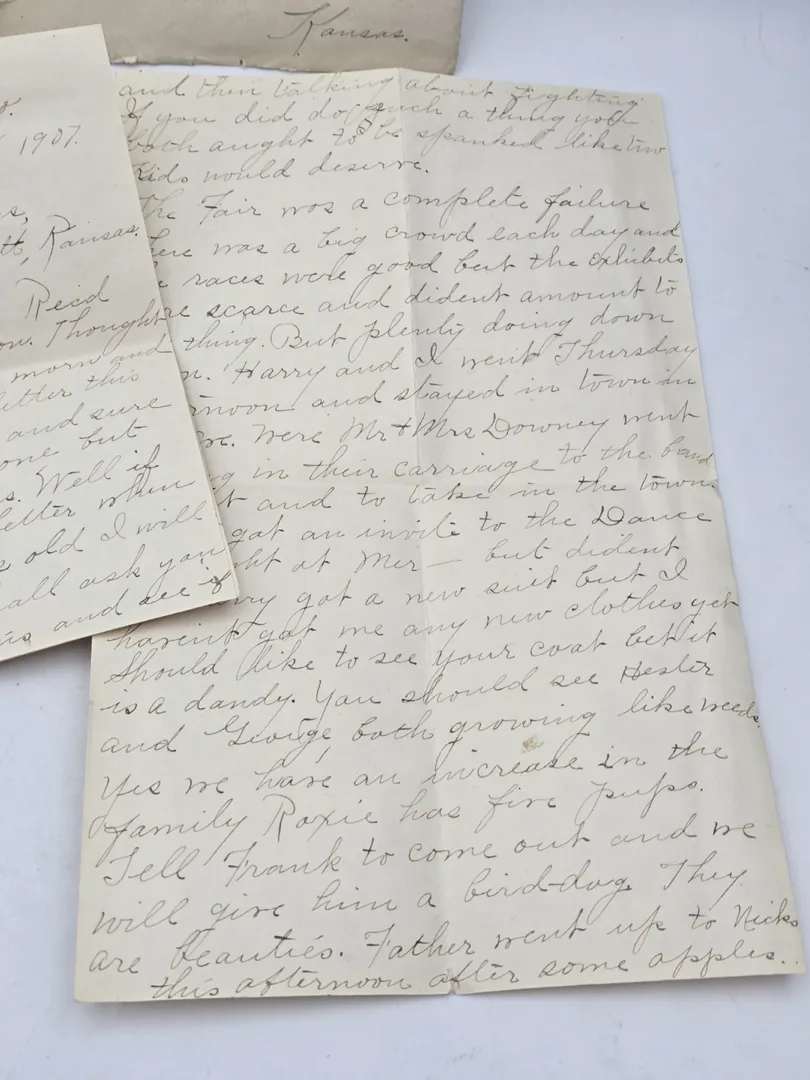 Kansas.
1907.
Kansas.
Reid
Thought
morn and
letter this
and sure
one but
Well if
letter when
old I will
all ask you
and see if
and then talking about fighting
If you did do such a thing you
both aught to be spanked like two
Kids would deserve.
The Fair was a complete failure
was a big crowd each day and
races were good but the exhibits
scarce and dident amount to
thing. But plenty doing down
Harry and I went Thursday
noon and stayed in town in
Were Mr & Mrs Downey went
in their carriage to the band
and to take in the town.
got an invite to the Dance
at Mer— but dident
got a new suit but I
havent got me any new clothes yet
Should like to see your coat bet it
is a dandy. You should see Hester
and George both growing like weeds.
Yes we have an increase in the
family Roxie has five pups.
Tell Frank to come out and we
will give him a bird-dog. They
are beauties. Father went up to Nicks
this afternoon after some apples.